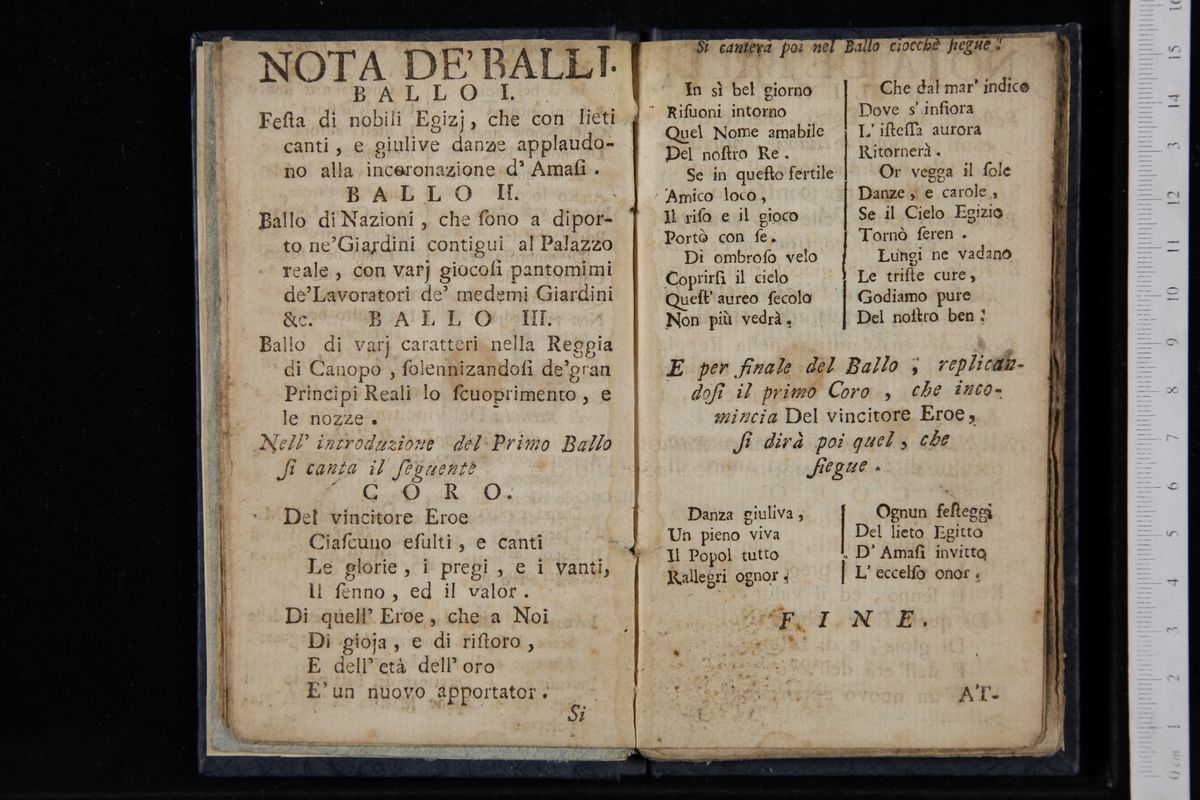 NOTA DE' BALLI.
BALLO I.
Feſta di nobili Egizj, che con lieti
canti, e giulive danze applaudo-
no alla incoronazione d'Amaſi.
BALLO II.
Ballo di Nazioni, che ſono a dipor-
to ne'Giardini contigui al Palazzo
reale, con varj giocoſi pantomimi
de'Lavoratori de' medemi Giardini
&c. BALLO III.
Ballo di varj caratteri nella Reggia
di Canopo, ſolennizandoſi de'gran
Principi Reali lo ſcuoprimento, e
le nozze.
Nell' introduzione del Primo Ballo
ſi canta il ſeguente
CORO.
Del vincitore Eroe
Ciaſcuno eſulti, e canti
Le glorie, i pregi, e i vanti,
Il ſenno, ed il valor.
Di quell' Eroe, che a Noi
Di gioja, e di riſtoro,
E dell' età dell' oro
E' un nuovo apportator.
Si
Si canterà poi nel Ballo ciocchè ſiegue:
In sì bel giorno
Riſuoni intorno
Quel Nome amabile
Del noſtro Re.
Se in queſto fertile
Amico loco,
Il riſo e il gioco
Portò con ſe.
Di ombroſo velo
Coprirſi il cielo
Queſt' aureo ſecolo
Non più vedrà.
Che dal mar' indico
Dove s' infiora
L' iſteſſa aurora
Ritornerà.
Or vegga il ſole
Danze, e carole,
Se il Cielo Egizio
Tornò ſeren.
Lungi ne vadano
Le triſte cure,
Godiamo pure
Del noſtro ben!
E per finale del Ballo, replican-
doſi il primo Coro, che inco-
mincia Del vincitore Eroe,
ſi dirà poi quel, che
ſiegue.
Danza giuliva,
Un pieno viva
Il Popol tutto
Rallegri ognor.
Ognun feſteggi
Del lieto Egitto
D' Amaſi invitto
L' eccelſo onor.
FINE.
AT-